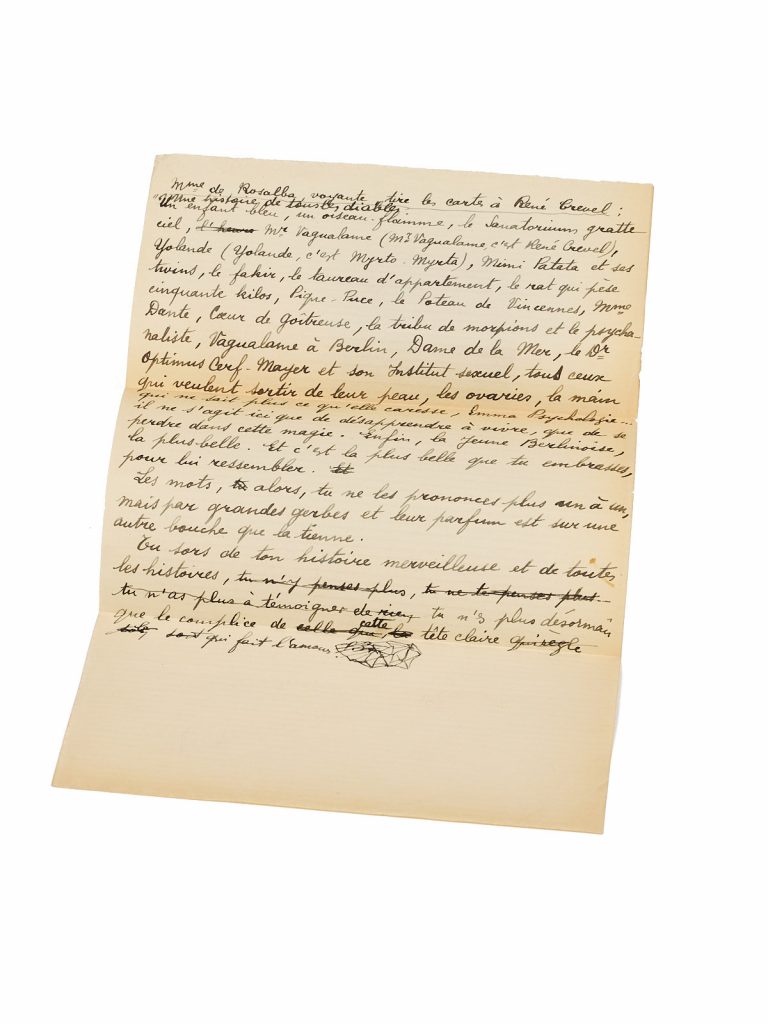 Mme de Rosalba, voyante, tire les cartes à René Crevel :
"Une histoire de tous les diables
Un enfant bleu, un oiseau-flamme, le Sanatorium gratte
ciel, l'heure Mr Vagualame (Mr Vagualame, c'est René Crevel),
Yolande (Yolande, c'est Myrto-Myrta), Mimi Patata et ses
twins, le fakir, le taureau d'appartement, le rat qui pèse
cinquante kilos, Pique-Puce, le Poteau de Vincennes, Mme
Dante, Cœur de Goîtreuse, la tribu de morpions et le psycha-
naliste, Vagualame à Berlin, Dame de la Mer, le Dr
Optimus Cerf-Mayer et son Institut sexuel, tous ceux
qui veulent sortir de leur peau, les ovaries, la main
qui ne sait plus ce qu'elle caresse, Emma Psychologie...
il ne s'agit ici que de désapprendre à vivre, que de se
perdre dans cette magie. Enfin, la Jeune Berlinoise,
la plus belle. Et c'est la plus belle que tu embrasses,
pour lui ressembler. Et
Les mots, tu alors, tu ne les prononces plus un à un,
mais par grandes gerbes et leur parfum est sur une
autre bouche que la tienne.
Tu sors de ton histoire merveilleuse et de toutes
les histoires, tu n'y penses plus, tu ne te penses plus
tu n'as plus à témoigner de rien, tu n'es plus désormais
que le complice de celle que cette la tête claire qui règle
soit qui fait l'amour.